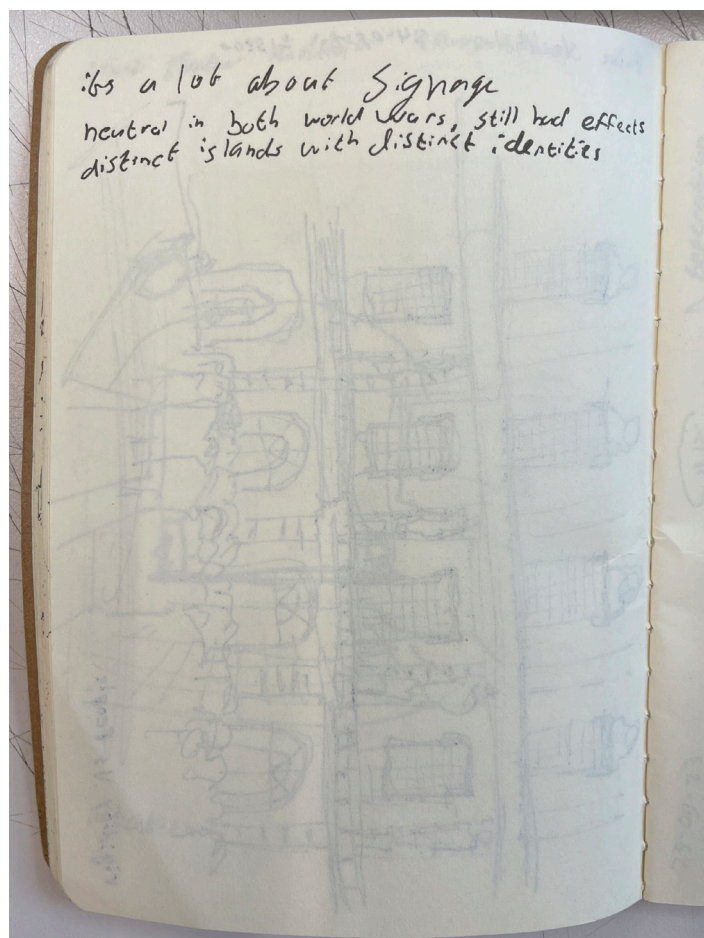 its a lot about Signage
neutral in both world wars, still had effects
distinct islands with distinct identities